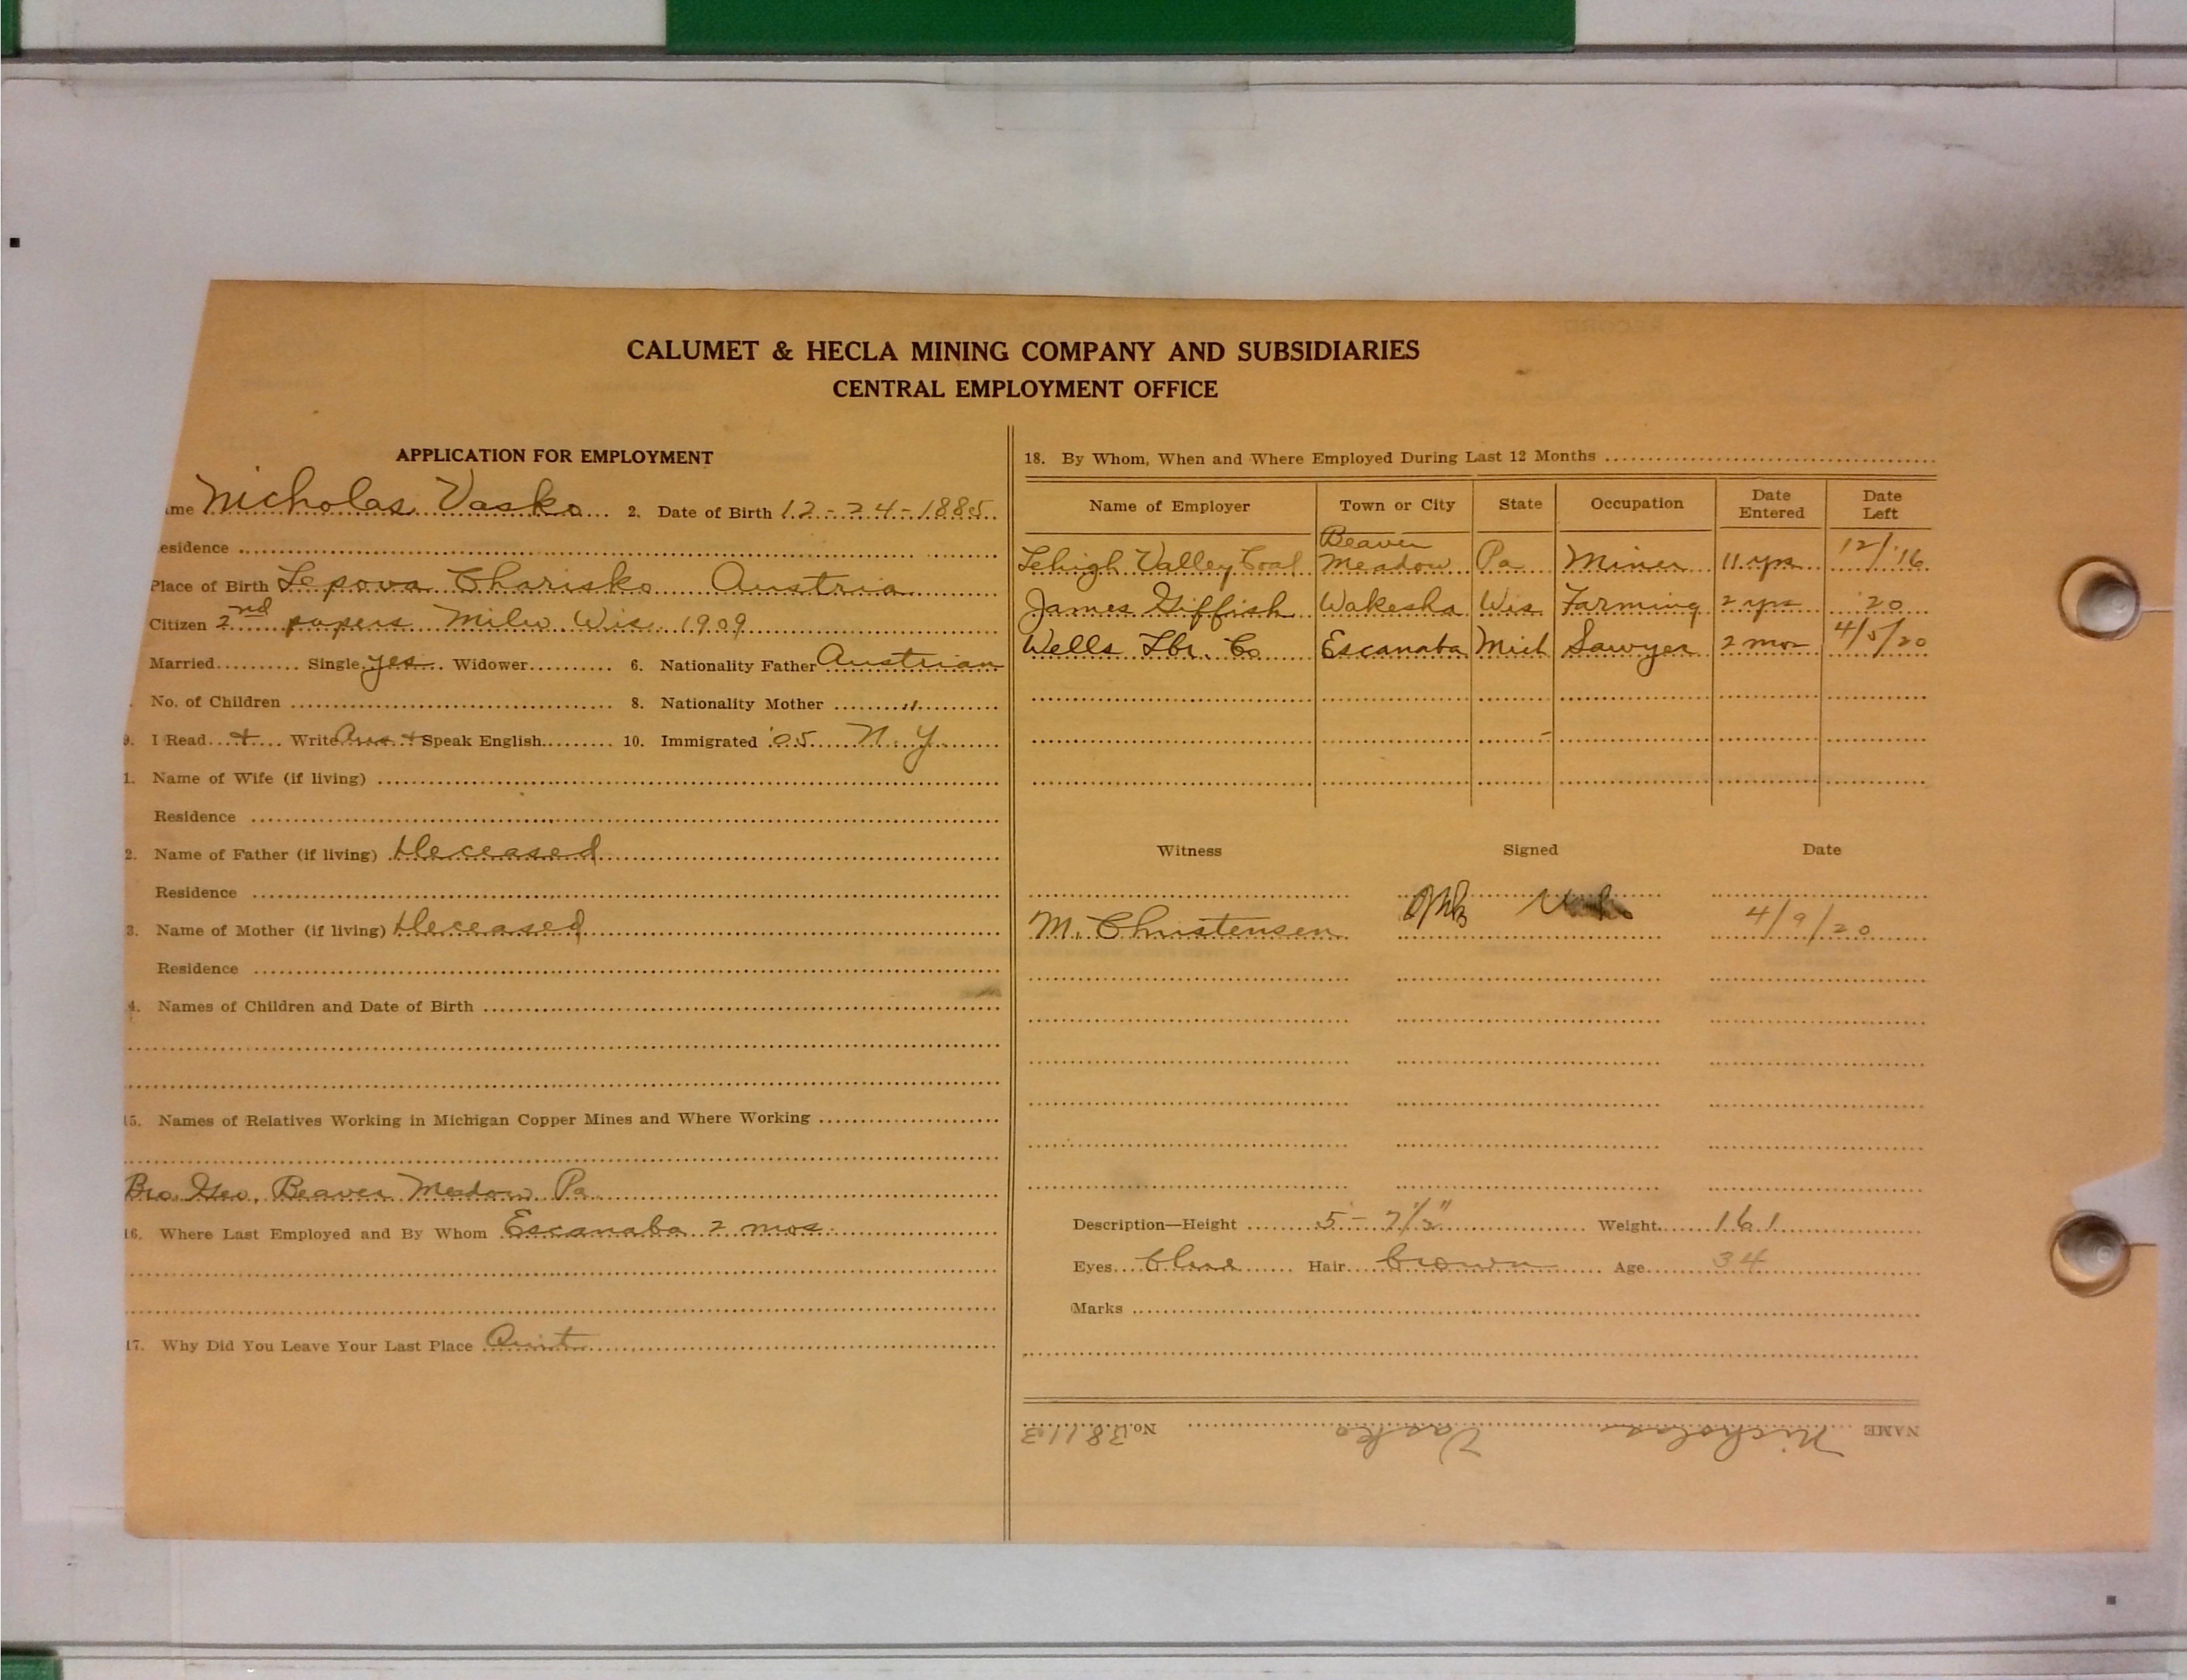 CALUMET & HECLA MINING COMPANY AND SUBSIDIARIES
CENTRAL EMPLOYMENT OFFICE
APPLICATION FOR EMPLOYMENT
ame Nicholas Vasko 2. Date of Birth 12-24-1885
esidence
Place of Birth Lepova Charisko Austria
Citizen 2nd papers Milw Wis. 1909
Married Single yes Widower 6. Nationality Father Austrian
No. of Children 8. Nationality Mother "
9. I Read + Write Aus + Speak English 10. Immigrated '05 N.Y.
1. Name of Wife (if living)
Residence
2. Name of Father (if living) Deceased
Residence
3. Name of Mother (if living) Deceased
Residence
4. Names of Children and Date of Birth
15. Names of Relatives Working in Michigan Copper Mines and Where Working
Bro. Geo. Beaver Meadow Pa
16. Where Last Employed and By Whom Escanaba 2 mos.
17. Why Did You Leave Your Last Place
18. By Whom, When and Where Employed During Last 12 Months
Name of Employer Town or City State Occupation Date Entered Date Left
Lehigh Valley Coal Beaver Meadow Pa Miner 11 yrs 12/'16
James Wakesha Wis Farming 2 yrs '20
Wells Lbr. Co Escanaba Mich Sawyer 2 mos 4/5/20
Witness Signed Date
M. Christensen 4/9/20
Description—Height 5-7½" Weight 161
Eyes blue Hair brown Age 34
Marks
NAME Nicholas Vasko No. 38113